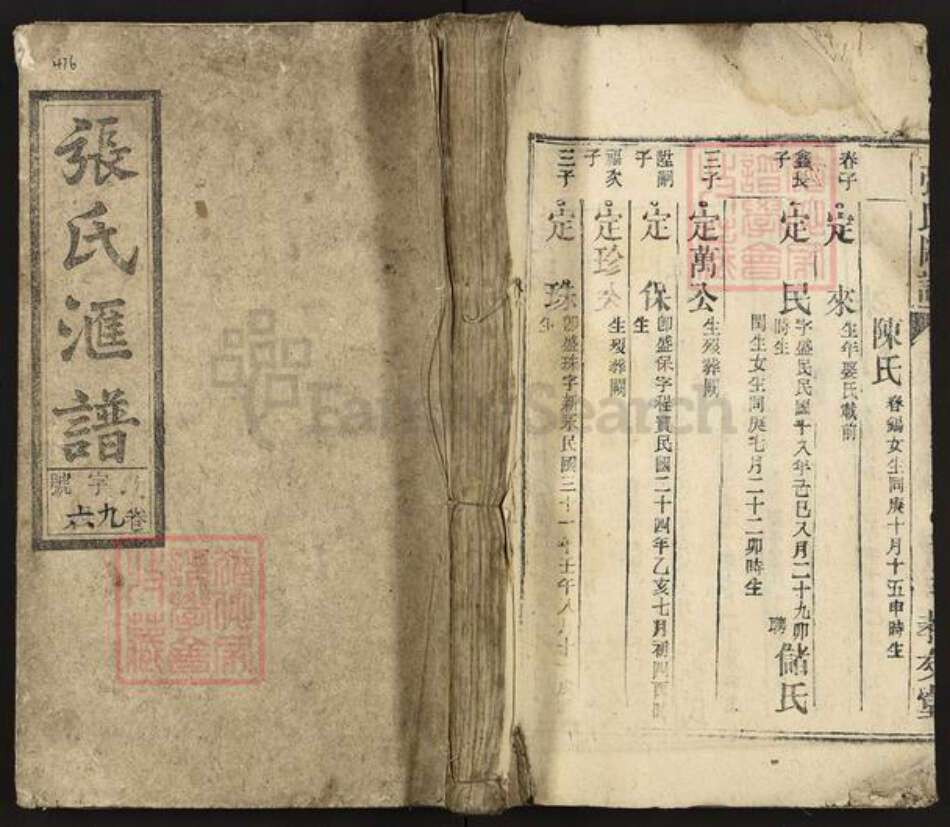 476
張氏滙譜
字號
卷九六
陳氏 春錫女生同庚十月十五申時生
春子 定來 生年娶氏載前
鑫長子 定民 字盛民民國十八年己巳八月二十九卯時生 聘儲氏
閏生女生同庚七月二十二卯時生
三子 定萬公 生歿葬闕
陞嗣子 定保 卽盛保字程寶民國二十四年乙亥七月初四酉時生
福次子 定珍公 生歿葬闕
三子 定珠 卽盛珠字新泉民國三十一年壬午八月十
孝友堂
FamilySearch